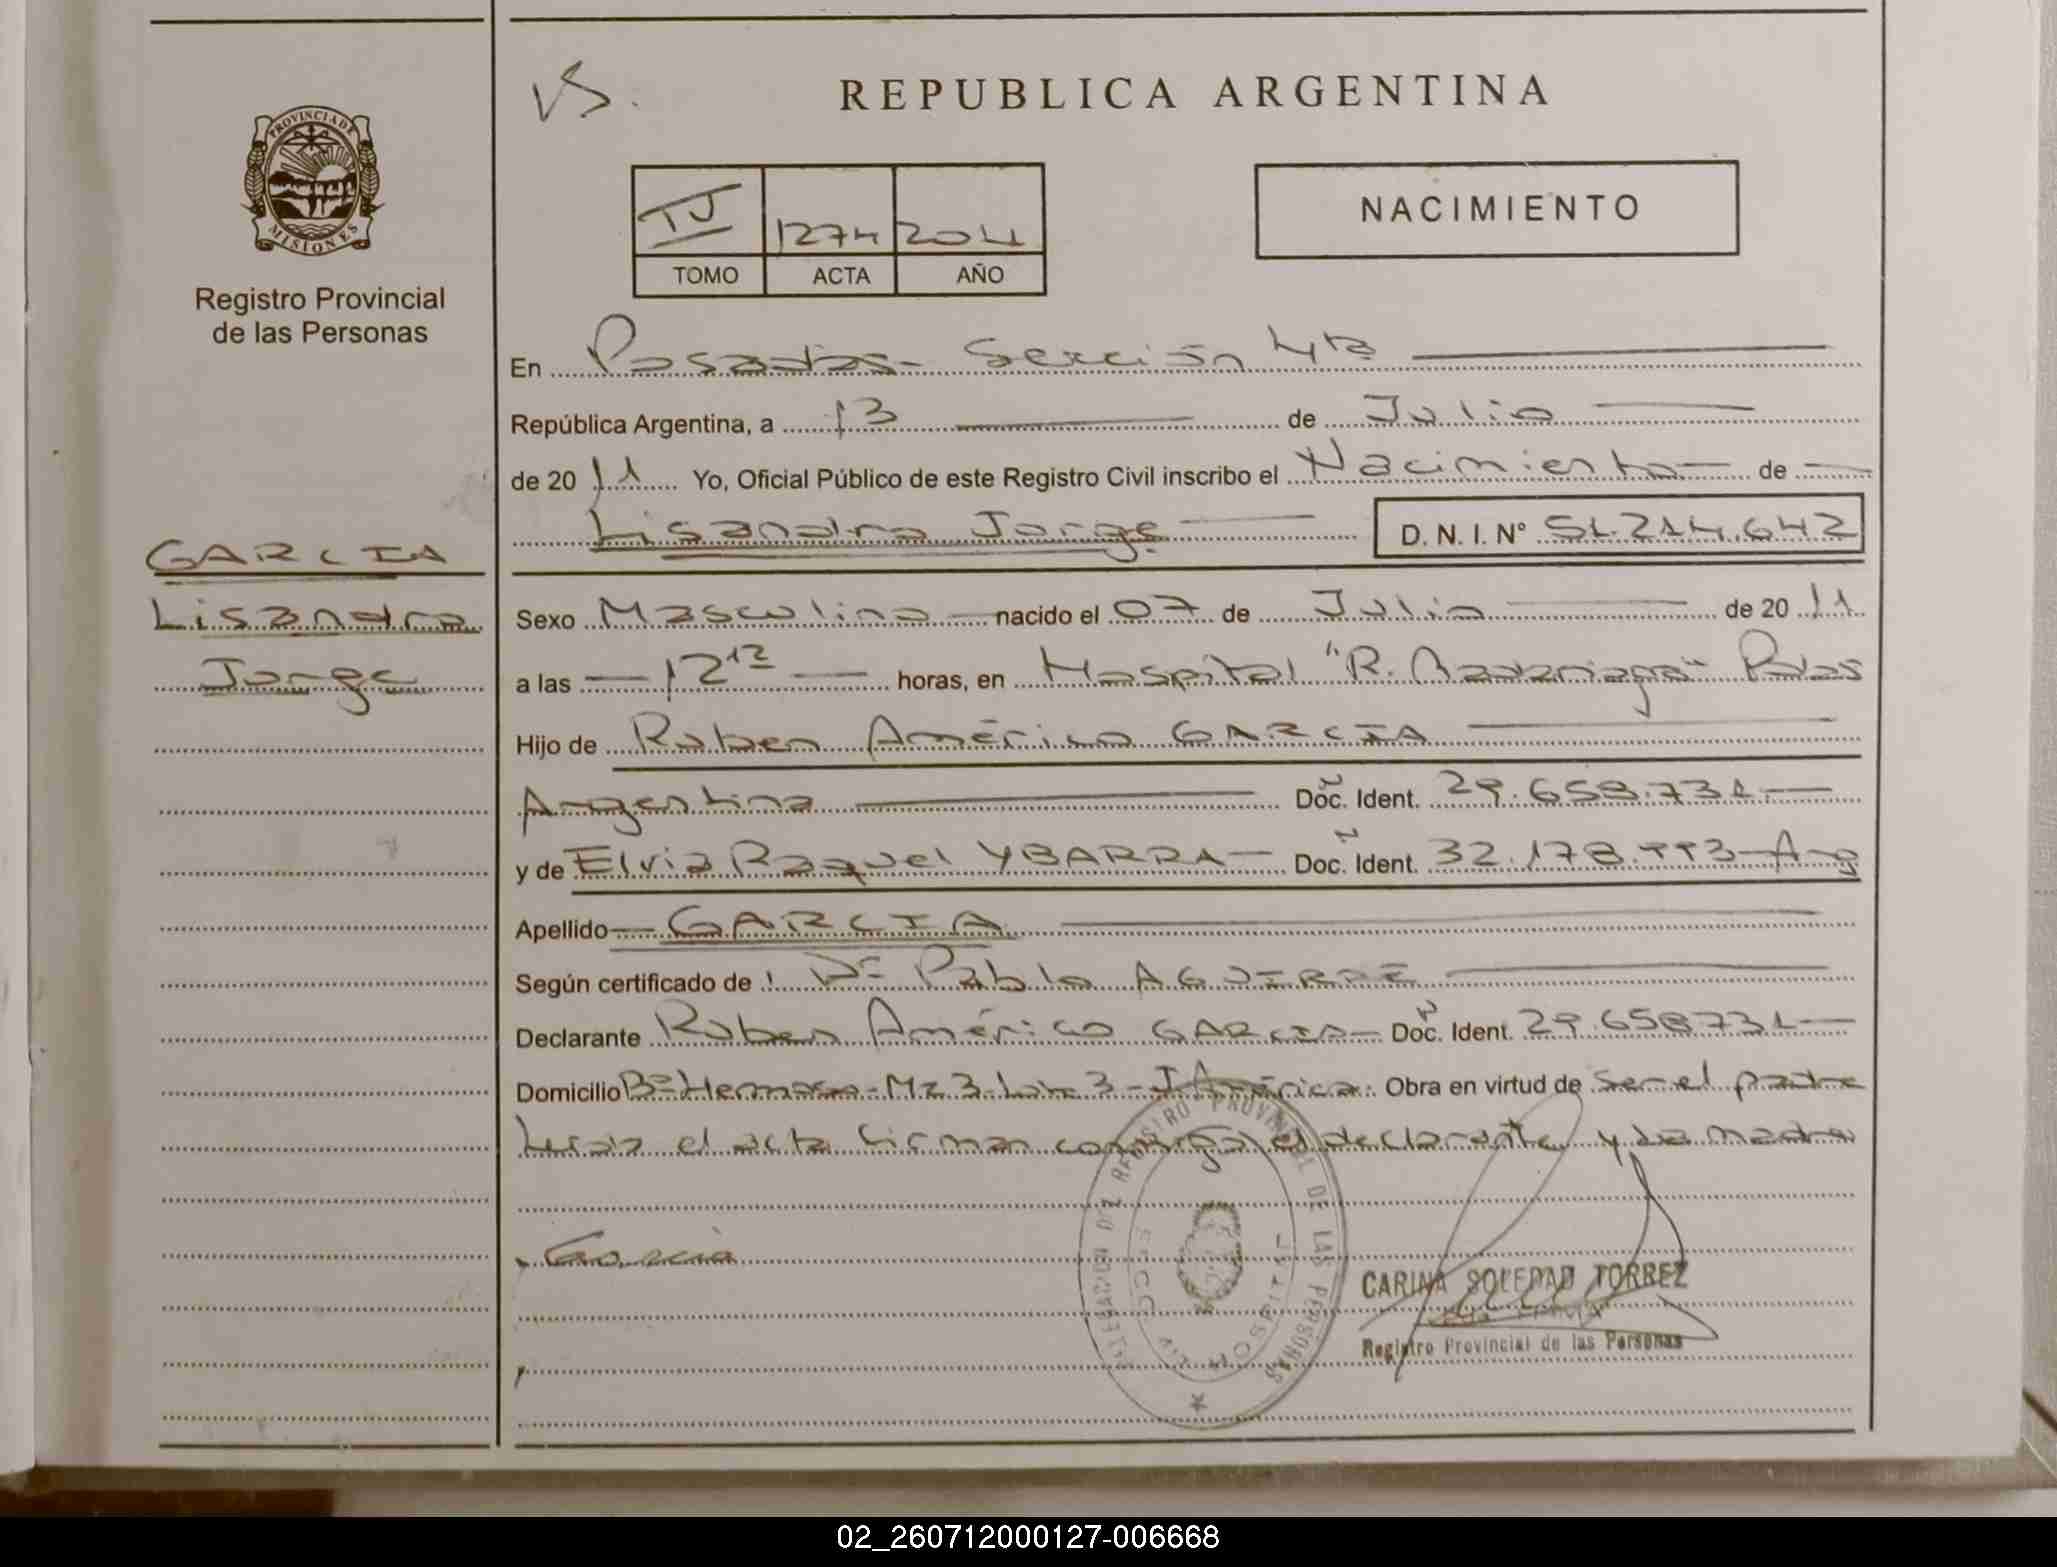 VS.
REPUBLICA ARGENTINA
PROVINCIA DE
MISIONES
NACIMIENTO
1274
TOMO ACTA AÑO
Registro Provincial
de las Personas
En Posadas - Sección 4ta
República Argentina, a 13 de Julio
de 2011 Yo, Oficial Público de este Registro Civil inscribo el Nacimiento de
Lisandro Jorge D. N. I. Nº 51.214.642
GARCIA
Lisandro
Jorge
Sexo Masculino nacido el 07 de Julio de 2011
a las 12 12 horas, en Hospital "R. Madariaga" Pdas
Hijo de Ruben Américo GARCIA
Argentina Doc. Ident. 29.658.731
y de Elvia Raquel YBARRA Doc. Ident. 32.178. Arg
Apellido GARCIA
Según certificado de Dr Pablo AGUIRRE
Declarante Ruben Américo GARCIA Doc. Ident. 29.658731
Domicilio Bº Hermoso - Mz 3 - Lote 3 - I América. Obra en virtud de ser el padre
Leída el acta firman conmigo el declarante y la madre
Garcia
REGISTRO PROVINCIAL DE LAS PERSONAS
HOSPITAL
CARINA SOLEDAD TORREZ
Registro Provincial de las Personas
02_260712000127-006668